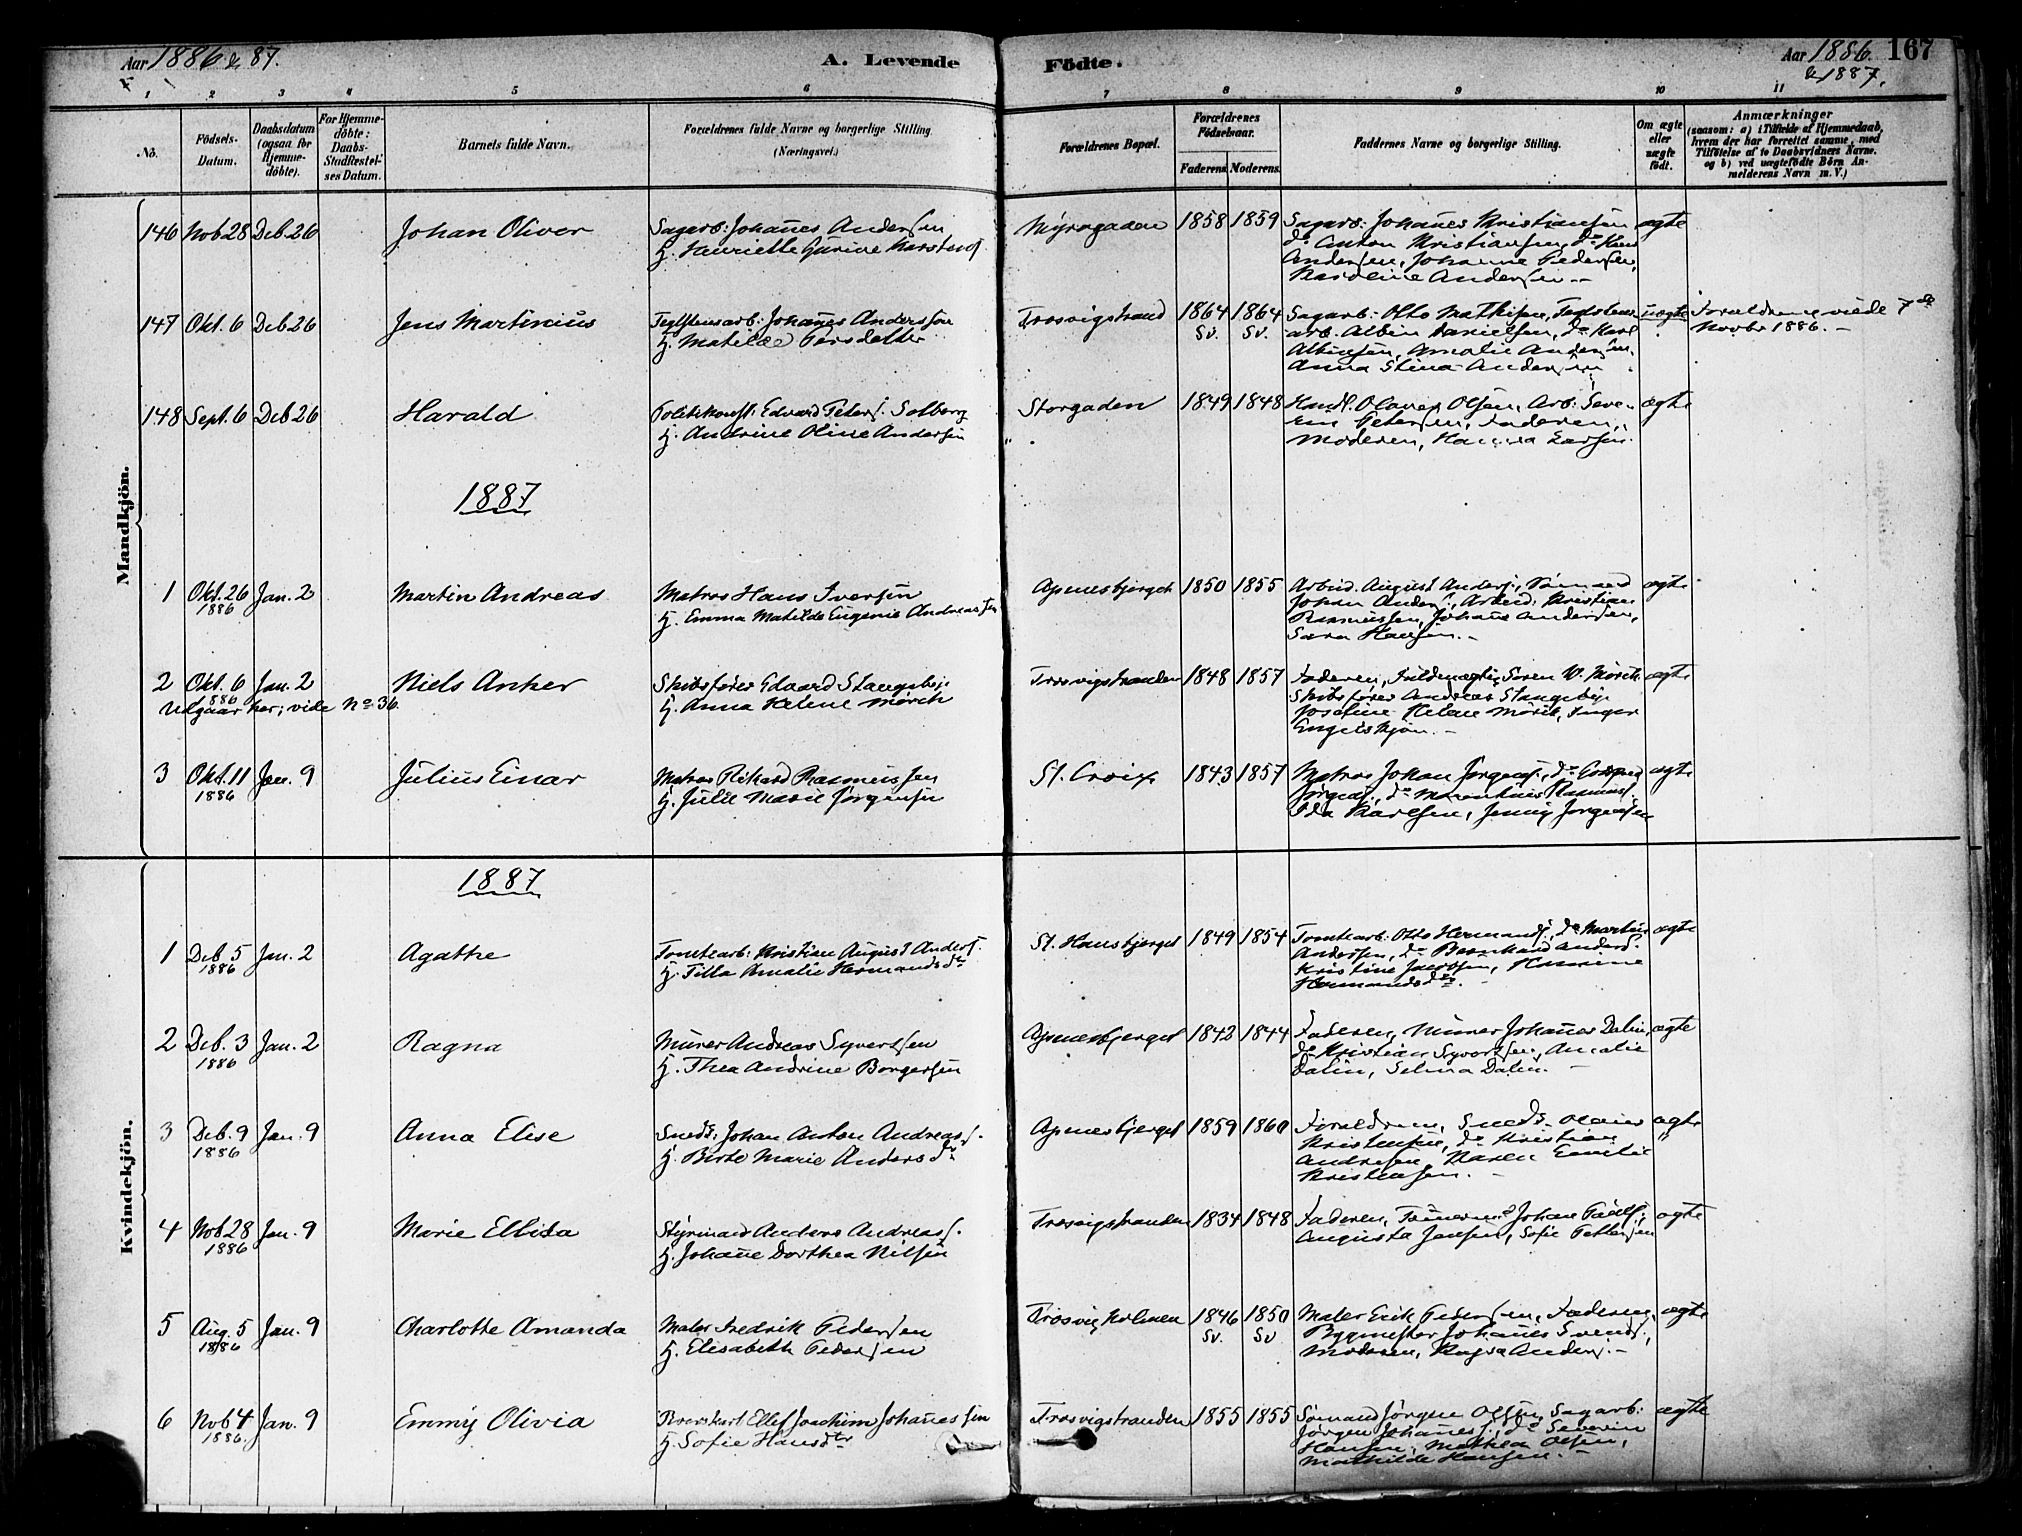 Aar 1886 & 87.
A. Levende
Födte.
Aar 1886. 167
& 1887.
1 2 3 4 5 6 7 8 9 10 11
No.
Födsels-Datum.
Daabsdatum (ogsaa for Hjemme-döbte).
For Hjemme-döbte: Daabs-Stadfæstel-ses Datum.
Barnets fulde Navn.
Forældrenes fulde Navne og borgerlige Stilling.
(Næringsvei.)
Forældrenes Bopæl.
Forældrenes Födselsaar.
Faderens. Moderens.
Faddernes Navne og borgerlige Stilling.
Om ægte eller uægte födt.
Anmærkninger
(saasom: a) i Tilfælde af Hjemmedaab,
hvem der har forrettet samme, med
Tilföielse af to Daabsvidners Navne.
og b) ved uægtefödte Börn An-
melderens Navn m. V.)
Mandkjön.
146 Nob 28 Deb 26 Johan Oliver Sagarb: Johañes Andersen Nÿragaden 1858 1859 Sagarb: Johañes Kristiansen ægte
H. Henriette Gurine Karstens do Anton Kristiansen, do Hans
Andersen, Johanne Pedersen,
Karoline Andersen. –
147 Okt. 6 Deb 26 Jens Martinius Teglstensarb: Johañes Anderssen Trosvigstrand 1864 1864 Sagarb: Otto Mathisen, uægte Forældrene viede 7de
H. Matilde Larsdatter Sv. Sv. arb. Albin Danielsen, do Karl Novbr 1886. –
Albinsen, Amalie Andersen,
Anna Stina Andersen
148 Sept. 6 Deb 26 Harald Politikonst: Edvard Peters. Solberg Storgaden 1849 1848 Handl. Olaves Olsen, Arb: Seve- ægte
H. Andrine Oline Andersen rin Petersen, Faderen,
Moderen, Hanna Larsen.
1887
1 Okt. 26 Jan. 2 Martin Andreas Matros Hans Iversen Apenesbjerget 1850 1855 Arbeid. August Anders., Sømand ægte
1886 H. Emma Matilde Eugenie Andreassen Johan Anders., Arbeid: Kristian
Rasmussen, Johañe Andersen,
Sara Hansen. –
2 Okt. 6 Jan. 2 Niels Anker Skibsfører Edvard Stangebye Trosvigstranden 1848 1857 Faderen, Fuldmægtig Søren W. Mørch ægte
1886 H. Anna Helene Mörch Skibsfører Andreas Stangebye
Udgaar her; vide No 36. Josefine Helene Mörch, Inger
Engelskjøn. –
3 Okt. 11 Jan. 9 Julius Einar Matros Rikard Rasmussen St. Croix 1843 1857 Matros Johan Jørgens., ægte
1886 H. Julie Marie Jørgensen Jørgens., do Marenkius Rasmus.
Ida Karlsen, Jenny Jørgensen
Kvindekjön.
1887
1 Deb. 5 Jan. 2 Agathe Tomtearb: Kristian August Anders. St. Hansbjerget 1849 1854 Tomtearb. Otto Hermands., do Martin ægte
1886 H. Tilla Amalie Hermandsdtr Andersen, do Bernhard Anders.
Kristine Jacobsen, Hansine
Hermandsdtr. –
2 Deb. 3 Jan. 2 Ragna Murer Andreas Syvertsen Apenesbjerget 1842 1844 Faderen, Murer Johañes Dalin, ægte
1886 H. Thea Andrine Borgersen do Kristian Syvertsen, Amalie
Dalin, Selma Dalin. –
3 Deb. 9 Jan. 9 Anna Elise Sneds. Johan Anton Andreas. Apenesbjerget 1859 1860 Forældrene, Sneds. Olaves ægte
1886 H. Berte Marie Andersdtr Kristensen, do Kristian
Andresen, Karen Emilie
Kristensen. –
4 Nob 28 Jan. 9 Marie Elbisa Styrmand Anders Andreas. Trosvigstranden 1834 1848 Faderen, Tømermd Johan Pauls., ægte
1886 H. Johañe Dorthea Nilsen Augusta Jensen, Sofie Pettersen
5 Aug. 5 Jan. 9 Charlotte Amanda Maler Fredrik Pedersen Trosvig Holmen 1846 1850 Maler Erik Pedersen, Faderen, ægte
1886 H. Elisabeth Pedersen Sv. Sv Bygmester Johañes Svends.,
Moderen, Anders. –
6 Nob 4 Jan. 9 Emmÿ Olivia Ellef Joachim Johañessen Trosvigstranden 1855 1855 Sømand Jørgen Olsen, Sagarb: ægte
1886. H. Sofie Hansdtr Jørgen Johañes., do Severin
Hansen, Mathea Olsen,
Mathilde Hansen. –